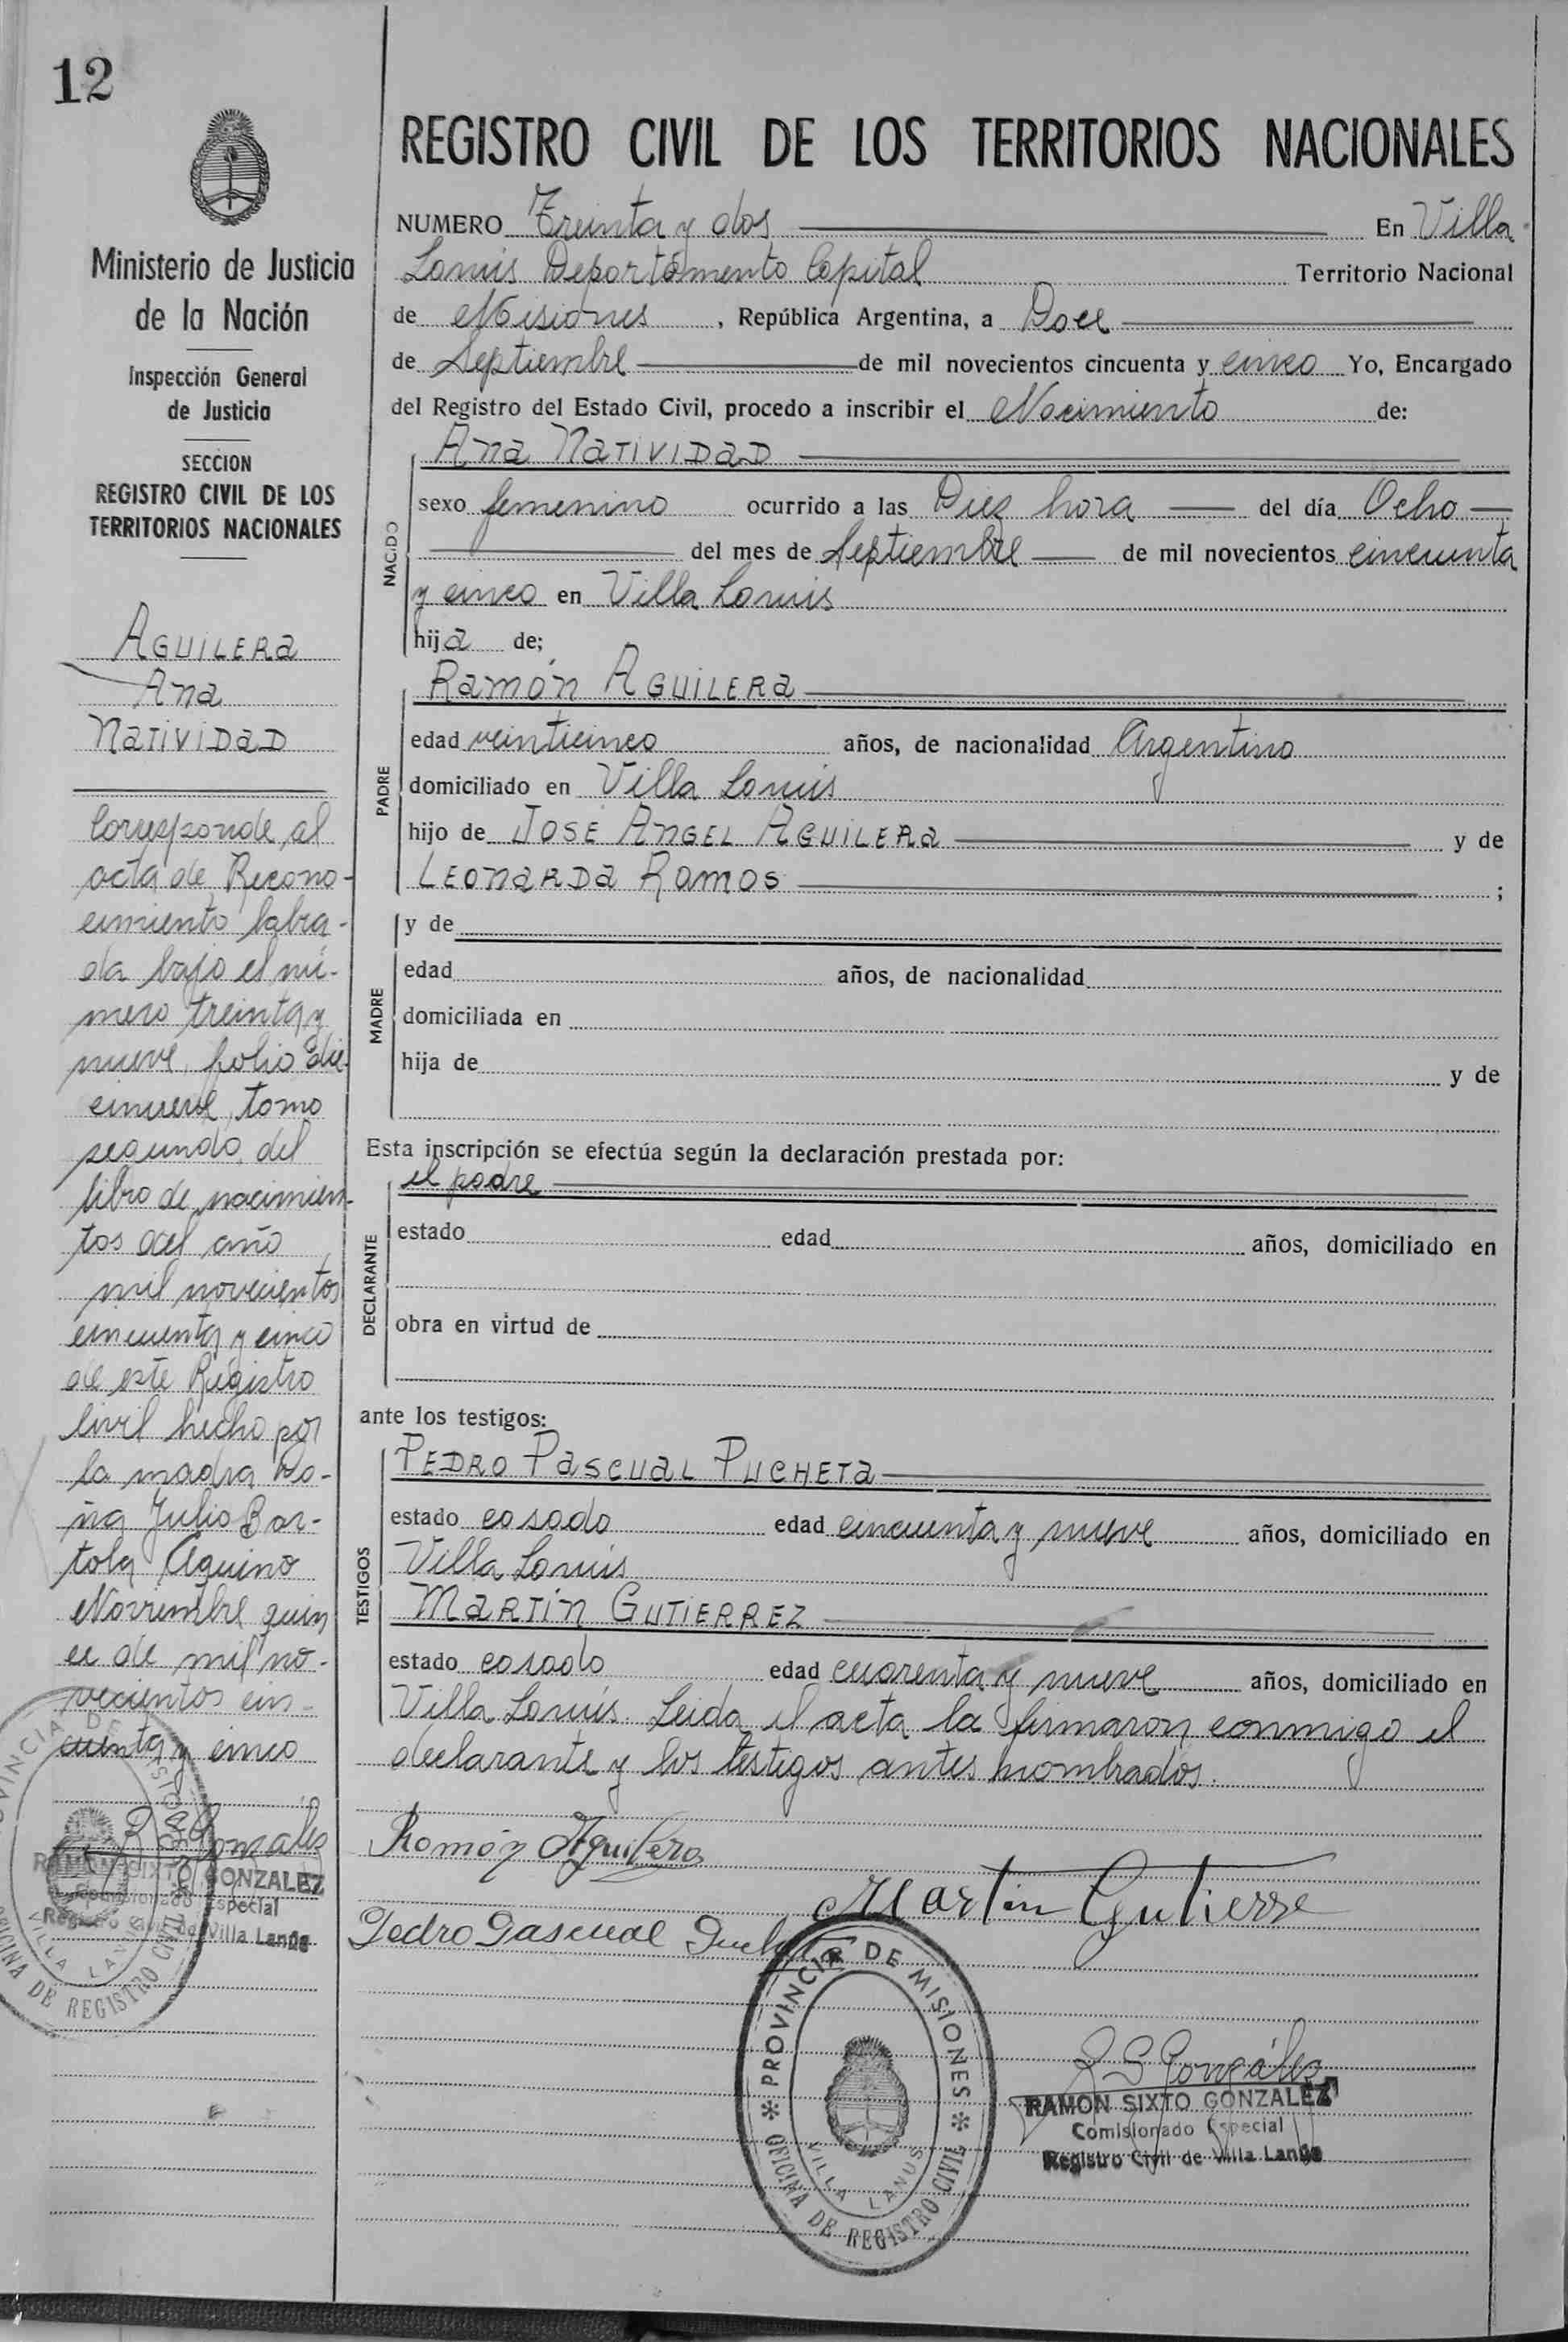 12
REGISTRO CIVIL DE LOS TERRITORIOS NACIONALES
Ministerio de Justicia
de la Nación
Inspección General
de Justicia
SECCION
REGISTRO CIVIL DE LOS
TERRITORIOS NACIONALES
AGUILERA
Ana
NATIVIDAD
Corresponde al
acta de Recono-
cimiento labra-
da bajo el nú-
mero treinta y
nueve, folio die-
cinueve, tomo
segundo, del
libro de nacimien-
tos del año
mil novecientos
cincuenta y cinco
de este Registro
Civil hecho por
la madre Do-
ña Julia Bar-
tola Aquino
Noviembre quin
ce de mil no-
vecientos cin-
cuenta y cinco
RAMON SIXTO GONZALEZ
Comisionado Especial
Registro Civil de Villa Lanús
PROVINCIA DE MISIONES
OFICINA DE REGISTRO CIVIL
VILLA LANUS
NUMERO Treinta y dos En Villa
Lanús Departamento Capital Territorio Nacional
de Misiones, República Argentina, a Doce
de Septiembre de mil novecientos cincuenta y cinco Yo, Encargado
del Registro del Estado Civil, procedo a inscribir el Nacimiento de:
NACIDO
Ana NATIVIDAD
sexo femenino ocurrido a las Diez hora del día Ocho
del mes de Septiembre de mil novecientos cincuenta
y cinco en Villa Lanús
hija de;
PADRE
Ramón AGUILERA
edad veinticinco años, de nacionalidad Argentino
domiciliado en Villa Lanús
hijo de JOSE ANGEL AGUILERA y de
LEONARDA RAMOS ;
MADRE
y de
edad años, de nacionalidad
domiciliada en
hija de y de
Esta inscripción se efectúa según la declaración prestada por:
DECLARANTE
el padre
estado edad años, domiciliado en
obra en virtud de
ante los testigos:
TESTIGOS
PEDRO PASCUAL PUCHETA
estado casado edad cincuenta y nueve años, domiciliado en
Villa Lanús
MARTÍN GUTIERREZ
estado casado edad cuarenta y nueve años, domiciliado en
Villa Lanús. Leida el acta la firmaron conmigo el
declarante y los testigos antes nombrados.
Ramón Aguilera
Martin Gutierre
Pedro Pascual Pucheta
PROVINCIA DE MISIONES
OFICINA DE REGISTRO CIVIL
VILLA LANUS
R S González
RAMON SIXTO GONZALEZ
Comisionado Especial
Registro Civil de Villa Lanús